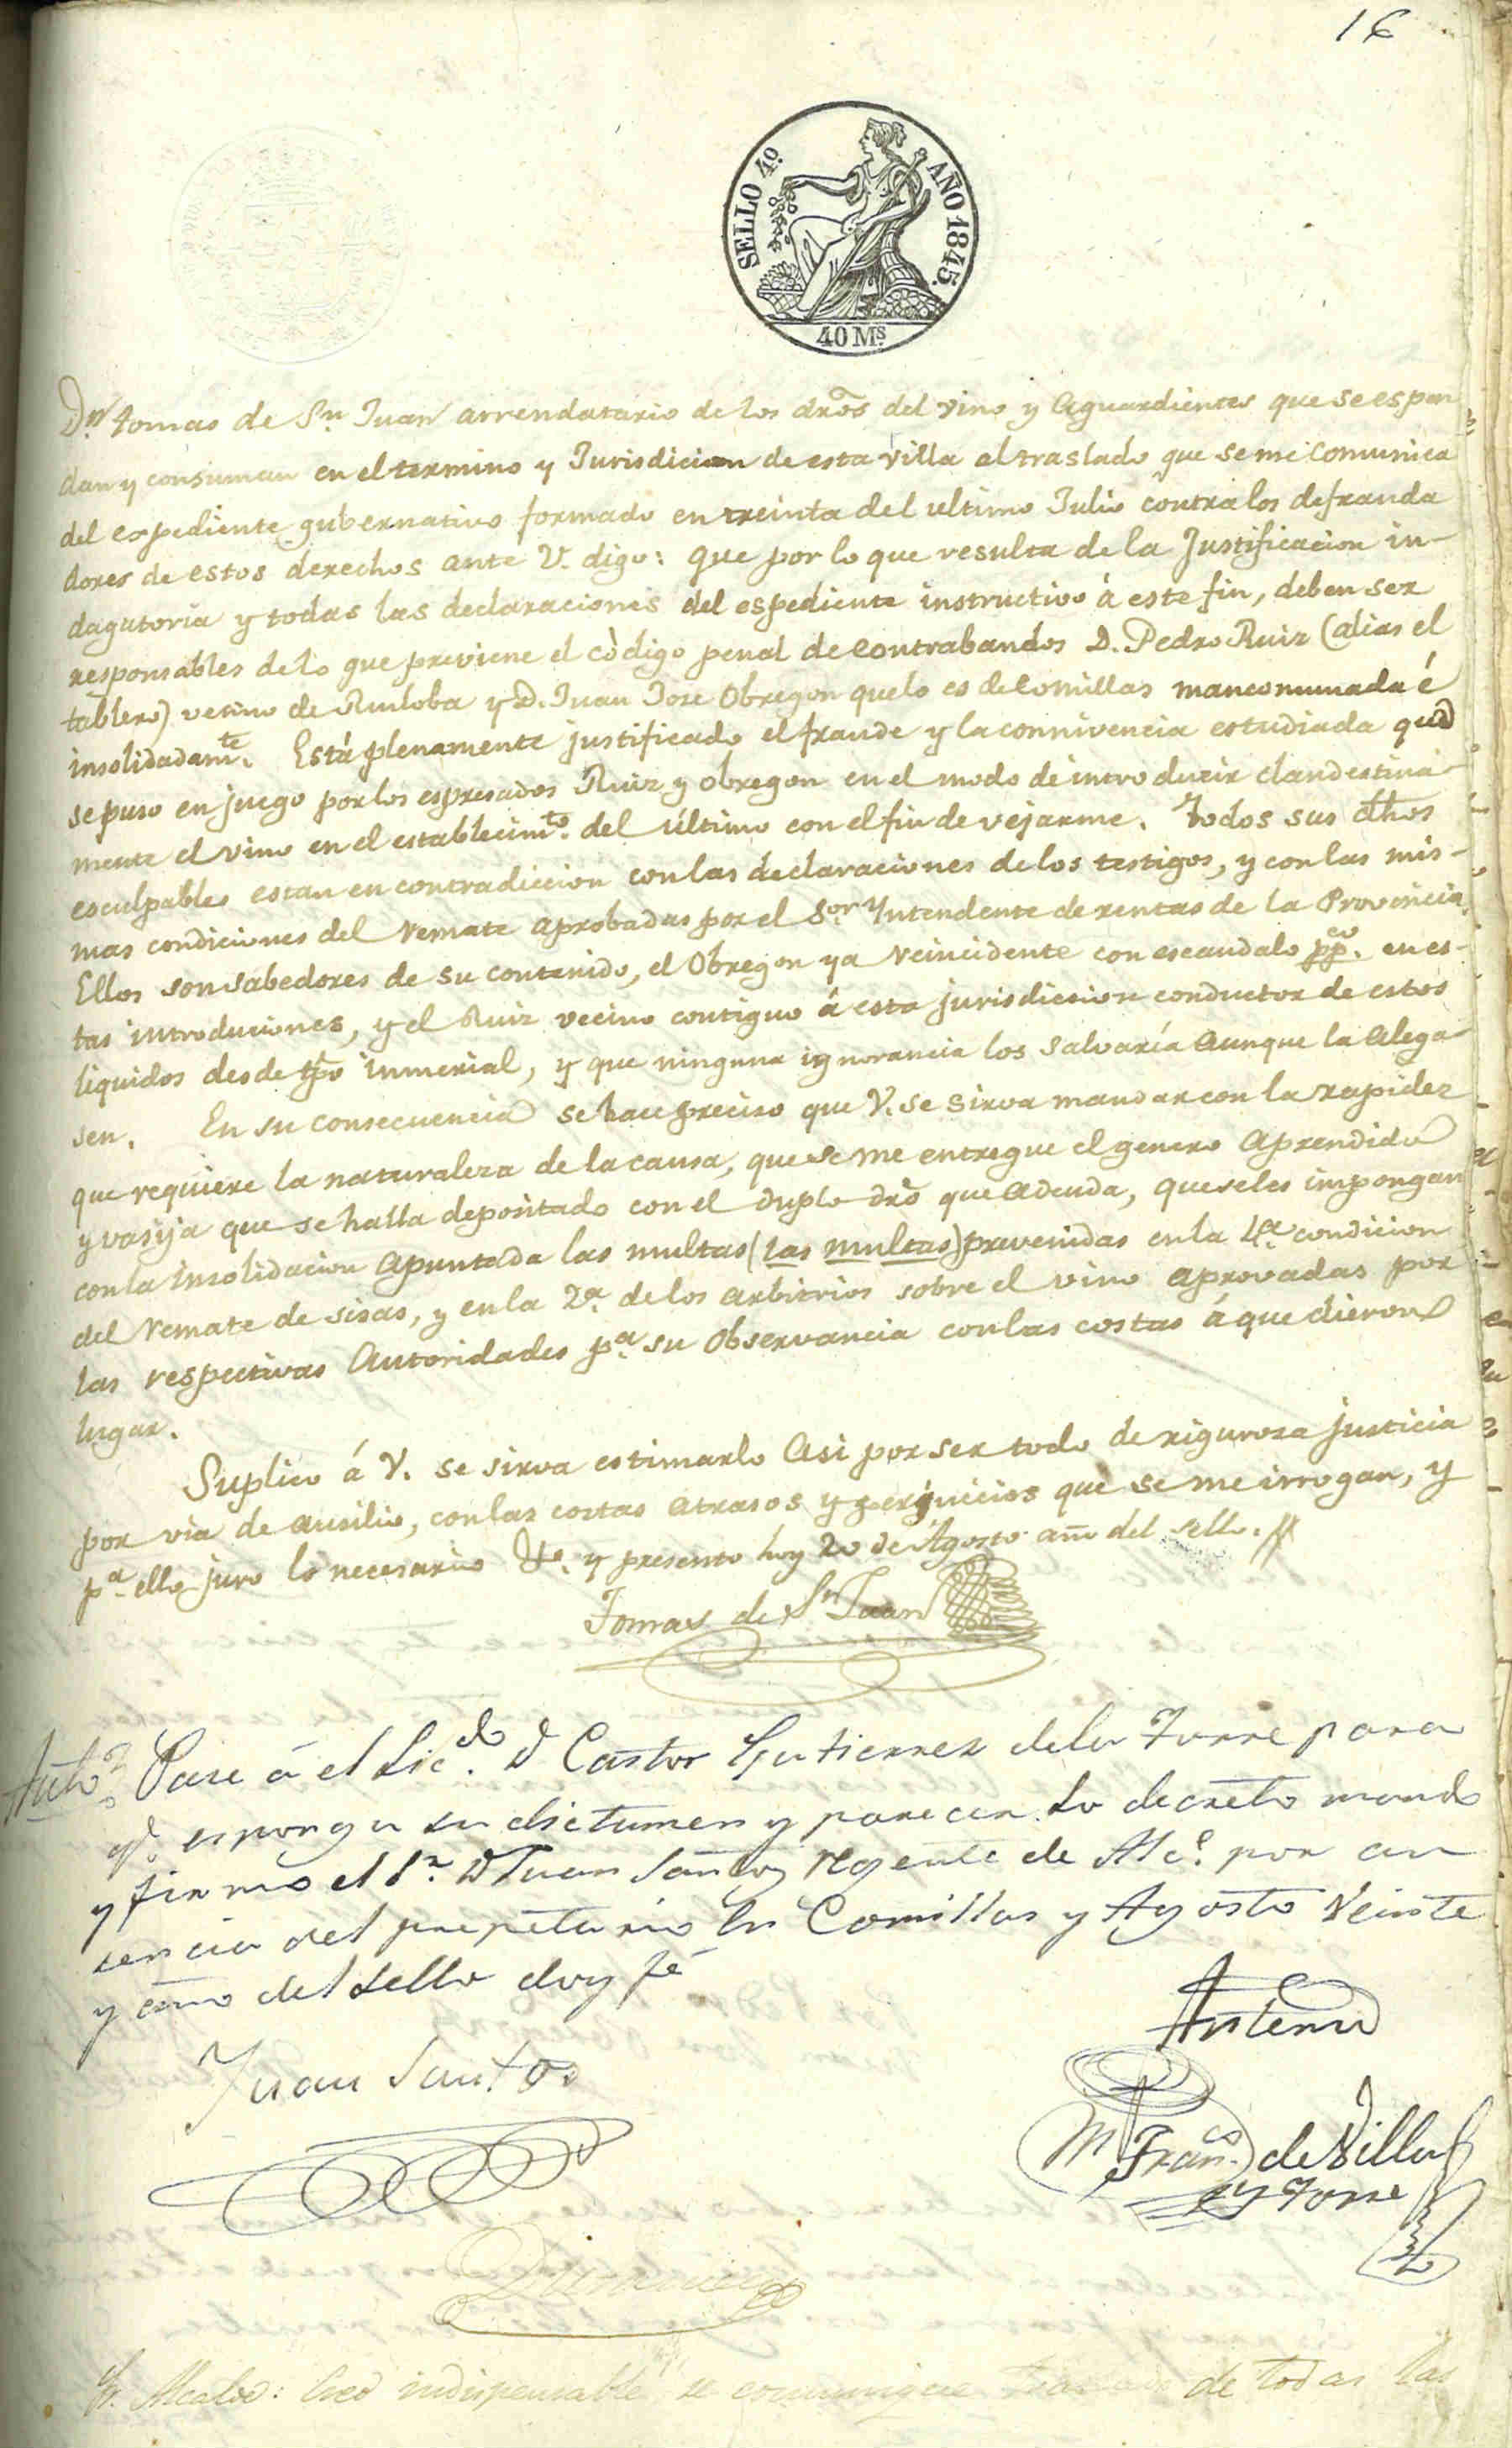 16
SELLO 4º AÑO 1845.
40 Mˢ
Dⁿ tomas de Sⁿ Juan arrendatario de los dros del vino y Aguardientes que se espen
dan y consuman en el termino y Jurisdicion de esta villa al traslado que se me comunica
del espediente gubernativo formado en treinta del ultimo Julio contra los defrauda
dores de estos derechos ante V. digo: que por lo que resulta de la Justificacion in-
dagatoria y todas las declaraciones del espediente instructivo á este fin, deben ser
responsables de lo que previene el código penal de contrabandos D. Pedro Ruiz (alias el
tablero) vecino de Ruiloba y D. Juan Jose Obregon que lo es de Comillas mancomunada é
insolidadamᵗᵉ. Está plenamente justificado el fraude y la connivencia estudiada que
se puso en juego por los espresados Ruiz y Obregon en el modo de introducir clandestina-
mente el vino en el establecimᵗᵒ. del último con el fin de vejarme. Todos sus dhos
esculpables estan en contradiccion con las declaraciones de los testigos, y con las mis-
mas condiciones del remate aprobadas por el Sᵒʳ Yntendente de rentas de la Provincia.
Ellos son sabedores de su contenido, el Obregon ya reincidente con escandalo ppᶜᵒ. en es-
tas introduciones, y el Ruiz vecino contiguo á esta jurisdiccion conductor de estos
liquidos desde tpo inmerial, y que ninguna ignorancia los salvaría aunque la alega-
sen. En su consecuencia se hace preciso que V. se sirva mandar con la rapidez
que requiere la naturaleza de la causa, que se me entregue el genero aprendido
y vasija que se halla depositado con el duplo dro que adeuda, que se les impongan
con la insolidacion apuntada las multas (las multas) prevenidas en la 4ª. condicion
del remate de sisas, y en la 2ª. de los arbitrios sobre el vino aprovadas por
las respectivas Autoridades pª su observancia con las costas á que dieron
lugar.
Suplico á V. se sirva estimarlo asi por ser todo de rigurosa justicia
por via de ausilio, con las costas atrasos y perjuicios que se me irrogan, y
pª ello juro lo necesario &ª. y presento hoy 20 de Agosto año del sello.
Tomas de Sⁿ Juan
Auto Pase á el Licᵈᵒ. D Castor Gutierrez de la Torre para
qᵉ. esponga su dictamen y parecer. Lo decreto mando
y firmo el Sʳ. D Juan Santos Regente de Alcᵉ. por au
sencia del propetario En Comillas y Agosto Veinte
y año del sello doy fé
Juan Santos
Antemi
M Franᶜᵒ. de Villa
y Torre
Sʳ. Alcalde: Creo indispensable se comunique traslado de todas las